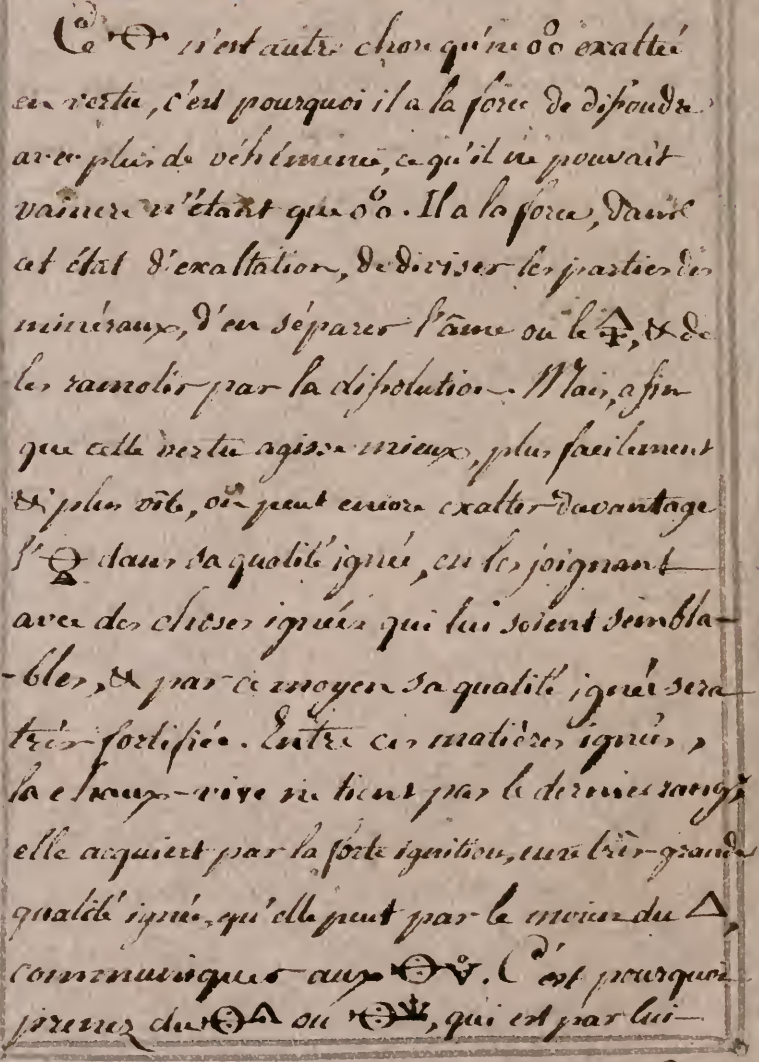 Ce 🜔 n'est autre chose qu'une exaltée
en vertu, c'est pourquoi il a la force de dissoudre
avec plus de véhémence, ce qu'il ne pouvait
vaincre n'étant que. Il a la force, dans
cet état d'exaltation, de diviser les parties des
minéraux, d'en séparer l'âme ou le 🜍, & de
les ramolir par la dissolution. Mais, afin
que cette vertu agisse mieux, plus facilement
& plus vîte, on peut encore exalter davantage
l' dans sa qualité ignée, en les joignant
avec des choses ignées qui lui soient sembla-
-bles, & par ce moyen sa qualité ignée sera
très fortifiée. Entre ces matières ignées,
la chaux-vive ne tient pas le dernier rang,
elle acquiert par la forte ignition, une très-grande
qualité ignée, qu'elle peut par le moien du 🜂,
communiquer aux. C'est pourquoi
prenez du ou, qui est par lui-